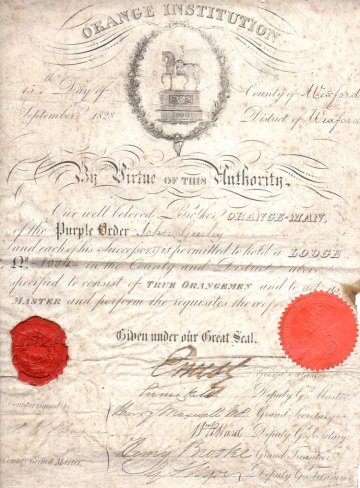 ORANGE INSTITUTION
15th Day of
County of Wexford
September 1828
District of Wexford
1690
By Virtue OF THIS Authority.
Our well beloved Brother ORANGE-MAN,
of the Purple Order John
and each of his Successors, is permitted to hold a LODGE
No. in the County and District above
specified to consist of TRUE ORANGEMEN and to act as
MASTER and perform the requisites thereof
Given under our Great Seal.
Grand Master
Deputy G. Master
Countersigned by
Henry Maxwell Grand Secretary
Deputy G. Secretary
Henry Brooke Grand Treasurer
Grand Master
Deputy G. Treasurer